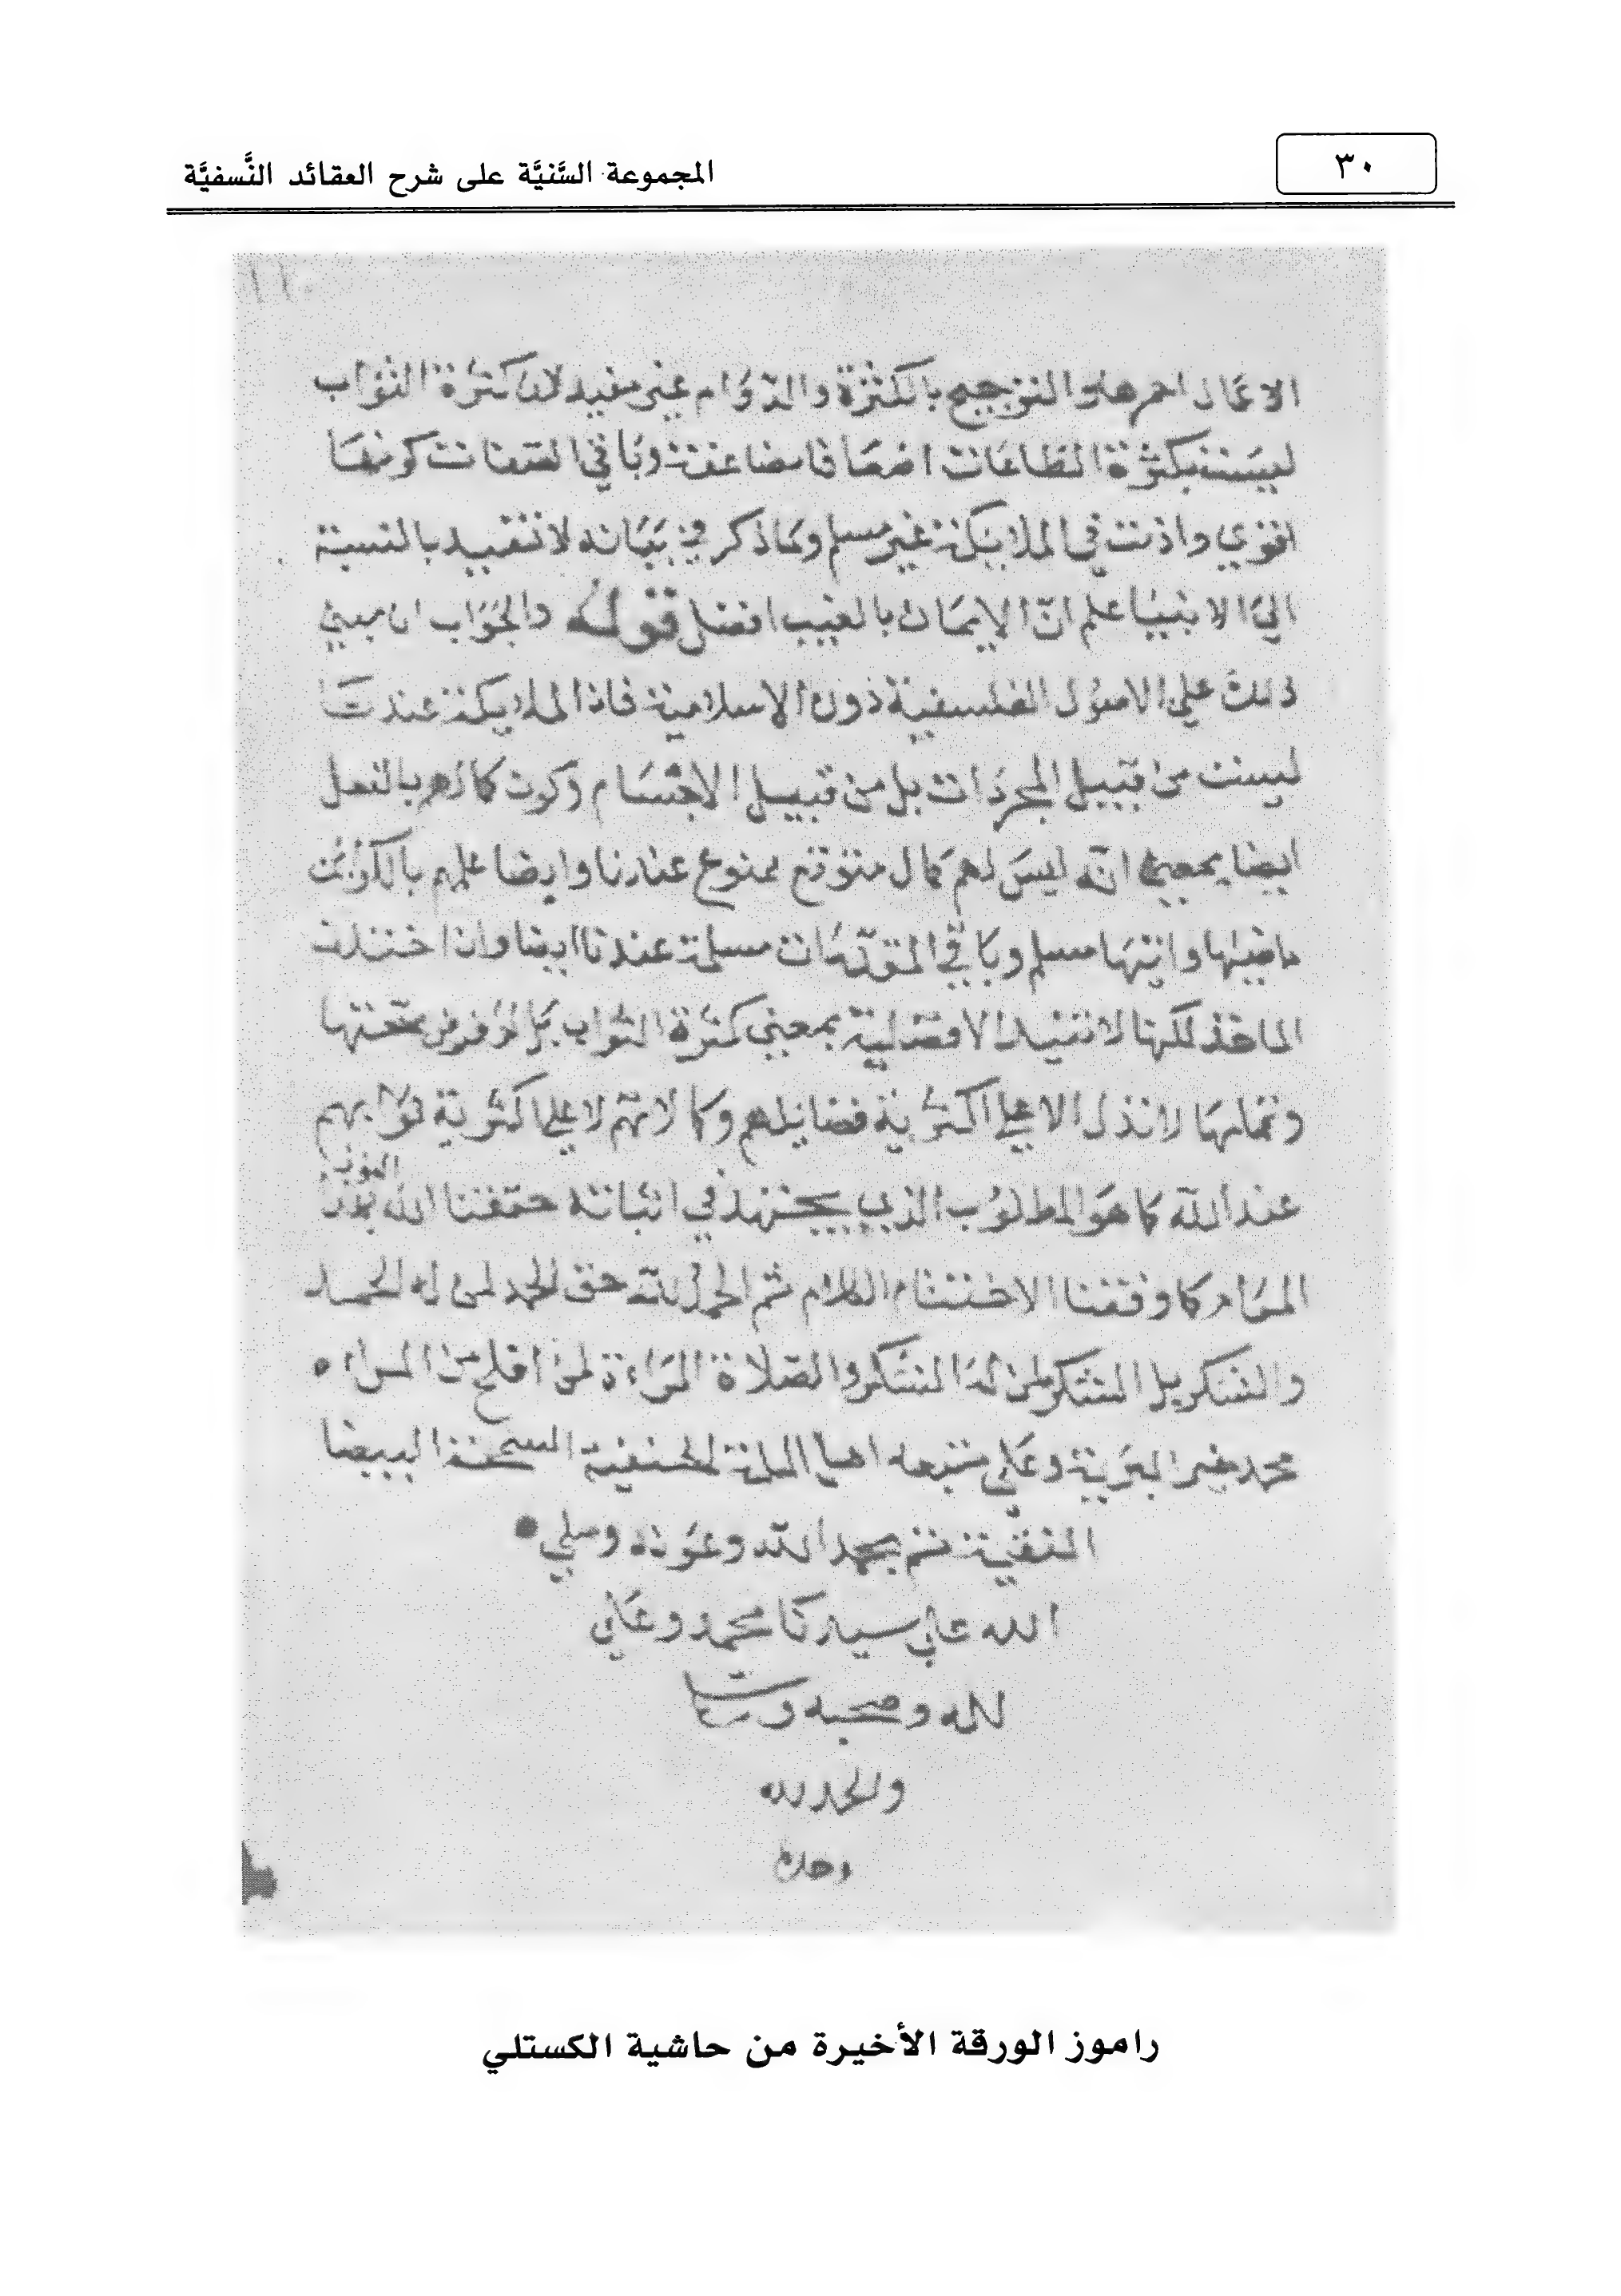 ٣٠
المجموعة السَّنيَّة على شرح العقائد النَّسفيَّة
١١٠
الاعمال احمزها والترجيح بالكثرة والدوام غير مفيد لان كثرة الثواب
ليست بكثرة الطاعات مضاعفته وباقي الصفات كونها
اقوي وادوت في الملايكة غير مسلم وما ذكر في بيانه لا تفيد بالنسبة
الي الانبيا علم انّ الايمان بالغيب افضل قوله والجواب ان مبني
ذلك علي الاصول الفلسفية دون الاسلامية فاذا الملايكة عندنا
ليست من قبيل المجردات بل من قبيل الاجسام وكون كمالهم بالفعل
ايضا بمعني انّه ليس لهم كمال متوقع ممنوع عندنا وايضا علمهم بالكواين
ماضيها واتيها مسلم وباقي المقدّمات مسلمة عندنا ايضا وان اختلفت
الماخذ لكنها لا تفيد الافضلية بمعني كثرة الثواب بل لو فرض صحتها
وتمامها لا تدل الا علي اكثرية فضايلهم وكمالاتهم لا علي اكثرية ثوابهم
عند الله كما هو المطلوب الذي يجتهد في اثباته حققنا الله
المرام كما وفقنا لاختتام الكلام ثم الحمد لله حق الحمد لمن له الحمد
والشكر بل الشكر لمن له الشكر والصلاة لمن افلح من
محمد خير البرية وعلي متبعه اهل الملة الحنفية السمحة البيضا
النقية تم بحمد الله وعونه وصلي
الله علي سيدنا محمد وعلي
اله وصحبه وسلم
والحمد لله
وحده
راموز الورقة الأخيرة من حاشية الكستلي